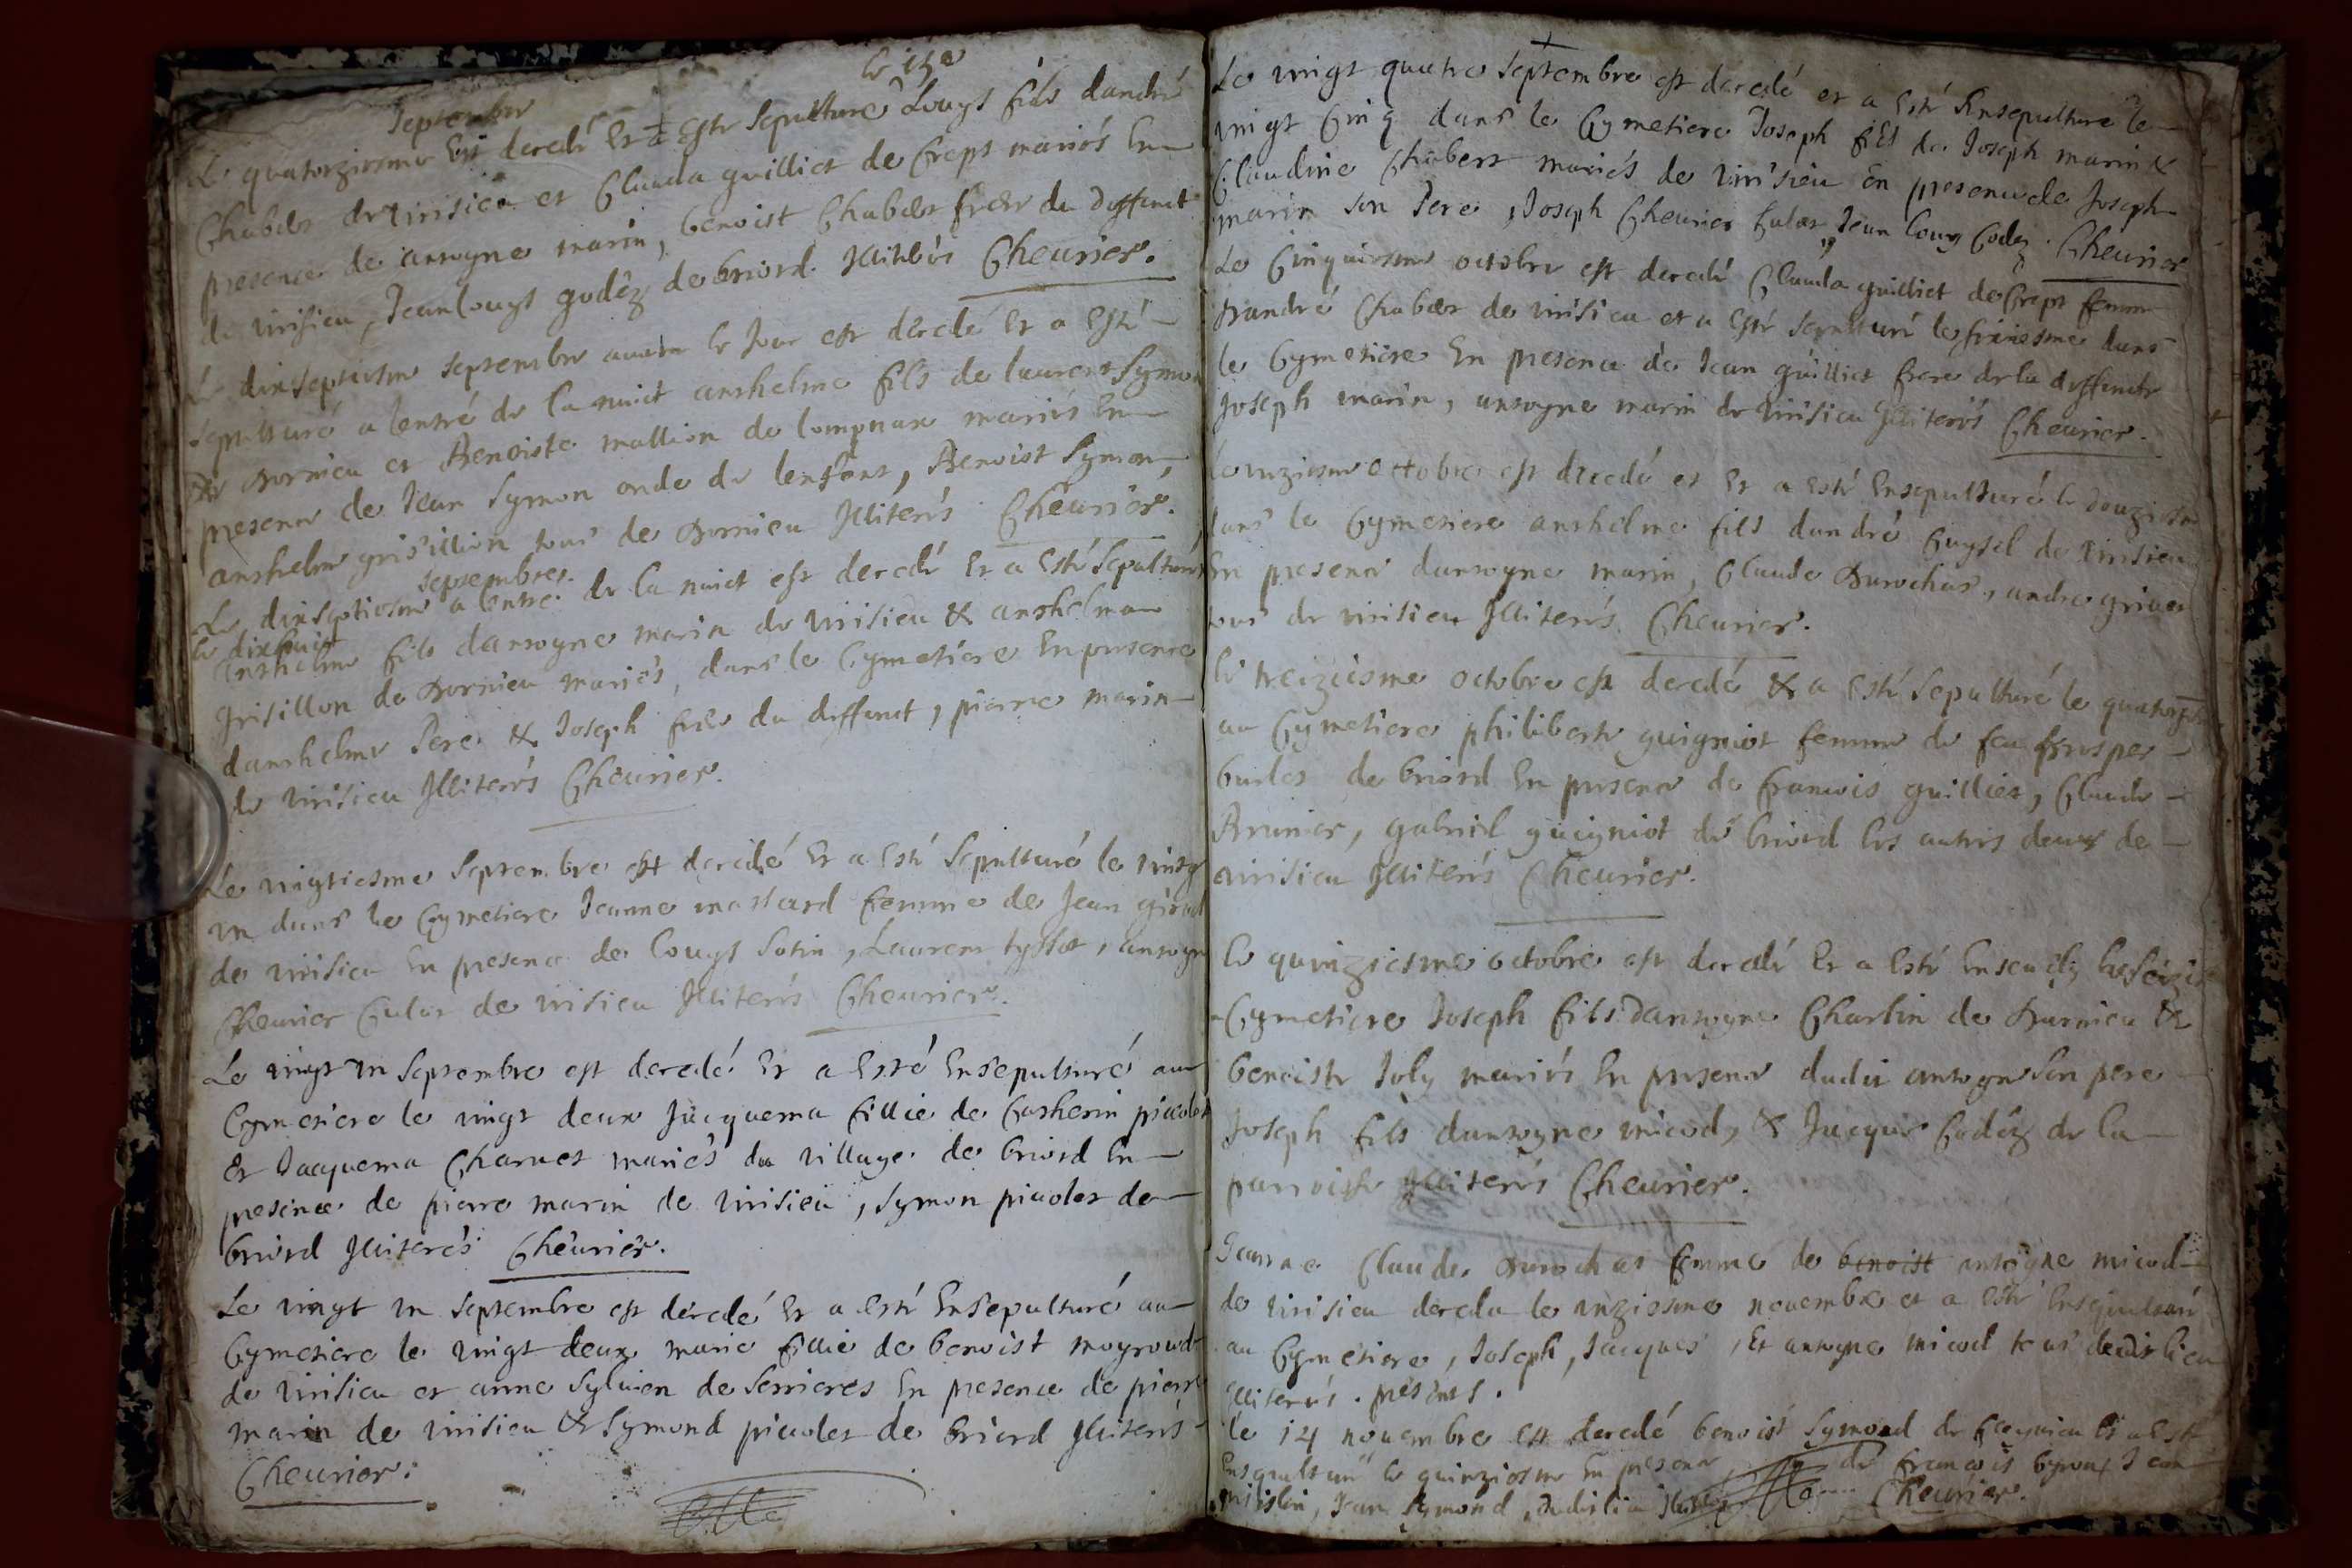 le 15e
Septembre
Le quatorziesme Est decedé Et a Esté Sepulturé Louys fils dandré
Chaber de virisieu et Clauda guilliet de Creps mariés En
presence de antoyne marin, benoist Chaber frere du deffunct
de virisieu, Jean louys godêz de briord Illiterés Cheurier.
Le dixseptiesme septembre avant le Jour est décedé Et a Esté
sepulturé a lentré de la nuict anthelme fils de laurent Symon
de dornieu et Benoiste mallion de lompnax mariés En
presence de Jean Symon oncle de lenfant, Benoist Symon,
anthelme grisillion tous de dornieu Illiterés Cheurier.
septembre
Le dixseptiesme a lentré de la nuict est decedé Et a Esté Sepulturé
le dixhuict
anthelme fils dantoyne marin de virisieu & anthelma
grisillon de dornieu mariés, dans le Cymetiere En presence
danthelme Pere & Joseph frere du deffunct, pierre marin
de virisieu Illiterés Cheurier.
Le vingtiesme Septembre est decedé Et a Esté Sepulturé le vingt
vn dans le Cymetiere Jeanne mastard femme de Jean girod
de virisieu En presence de louys Sotin, Laurens tyssot, antoyne
Cheurier Cular de virisieu Illiterés Cheurier.
Le vingt vn Septembre est decedé Et a Esté Ensepulturé au
Cymetiere le vingt deux Jacquema fillie de Catherin picolet
Et Jacquema Charuet mariés du village de briord En
presence de pierre marin de virisieu, Symon picolet de
briord Illiterés Cheurier.
Le vingt vn Septembre est decedé Et a Esté Ensepulturé au
Cymetiere le vingt deux marie fillie de benoist moyroud
de virisieu et anne Syluien de Serrieres En presence de pierre
marin de virisieu & Symond picolet de briord Illiterés
Cheurier.
Le vingt quatre Septembre est decedé et a Esté Ensepulturé le
vingt Cinq dans le Cymetiere Joseph fils de Joseph marin &
Claudine Chabert mariés de virisieu En presence de Joseph
marin son Pere, Joseph Cheurier Cular, Jean louys Godez. Cheurier
Le Cinquiesme octobre est decedé Clauda guilliet de Creps femme
dandré Chaber de virisieu et a Esté Sepulturé le sixiesme dans
le Cymetiere En presence de Jean guilliet frere de la deffuncte
Joseph marin, antoyne marin de virisieu Illiterés Cheurier.
Le vnziesme octobre est decedé et Et a Esté Ensepulturé le douziesme
dans le Cymetiere anthelme fils dandré Cuysel de virisieu
En presence dantoyne marin, Claude Durochat, andre griuet
tous de virisieu Illiterés Cheurier.
Le treiziesme octobre est decedé & a Esté Sepulturé le quatorzie
au Cymetiere philiberte guigniot femme de feu prosper
budes de briord En presence de francois guillier, Claude
Brunier, gabriel guigniot de briord les autres deux de
virisieu Illiterés Cheurier.
Le quinziesme octobre est decedé Et a Esté Enseuely le Seizie
Cymetiere Joseph fils dantoyne Charlin de durnieu &
benoiste Joly mariés En presence dudit antoyne son pere
Joseph fils dantoyne micod, & Jacque Godêz de la
parroisse Illiterés Cheurier.
Jeanne Claude Durochat femme de benoist antoyne micod
de virisieu deceda le vnziesme nouembre et a esté Ensepulturé
au Cymetiere, Joseph, Jacques, Et antoyne micod tous dudit lieu
Illiterés. présents.
le 14 nouembre est decedé benoist Symond de Et a Esté
Ensepulturé le quinziesme En presence de francois Jean
Jean Symond, dudit lieu Cheurier.